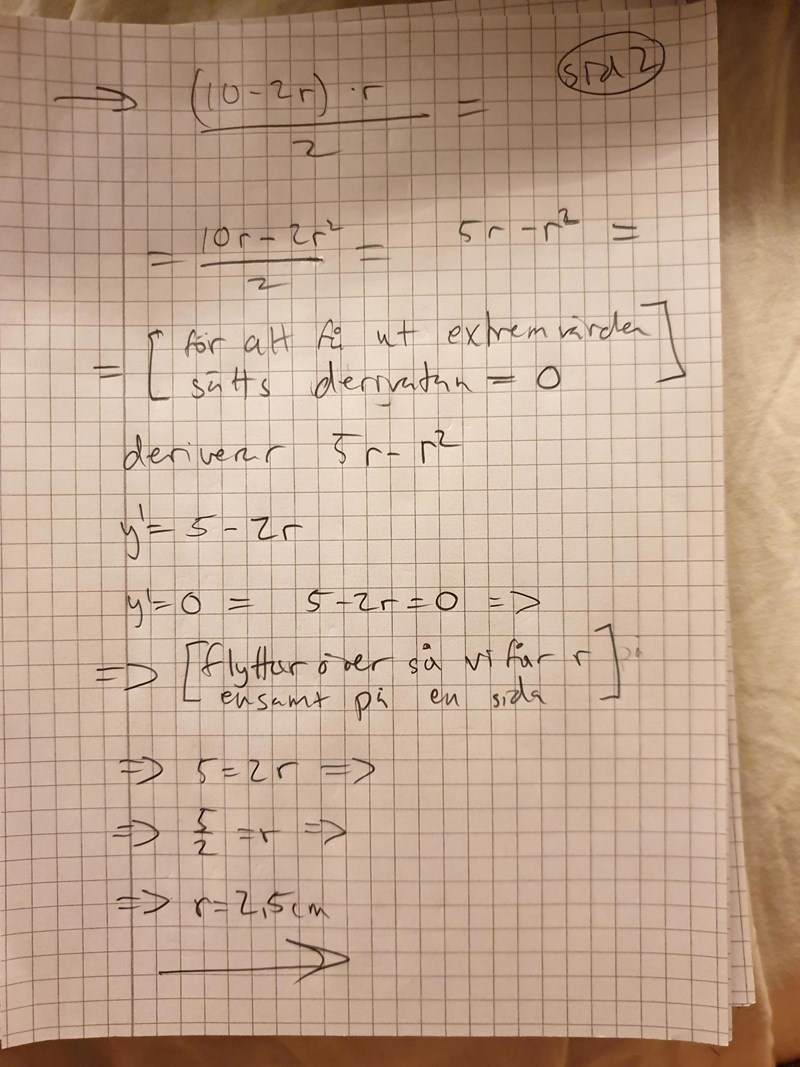 sid 2
→ (10-2r)·r / 2 =
= 10r-2r² / 2 = 5r-r² =
= [för att få ut extremvärden
sätts derivatan = 0]
deriverar 5r-r²
y'= 5-2r
y'=0 = 5-2r=0 =>
=> [flyttar över så vi får r
ensamt på en sida]
=> 5=2r =>
=> 5/2 =r =>
=> r=2,5cm
→